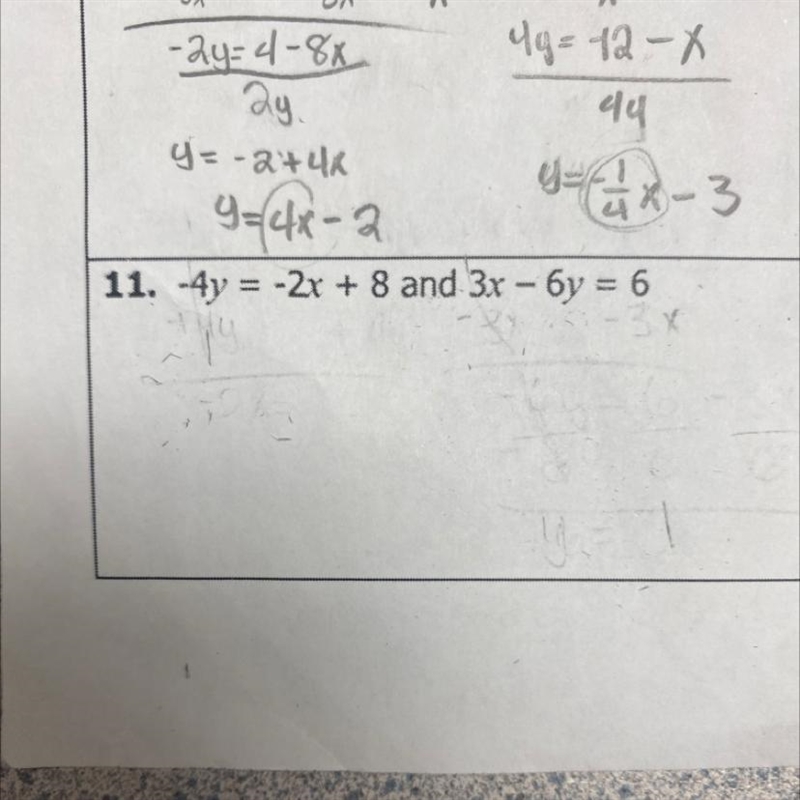 -2y = 4 - 8x
4y = -12 - x
2y
4y
y = -2 + 4x
y = 4x - 2
y = -1/4 x - 3
11. -4y = -2x + 8 and 3x – 6y = 6
- 3x
y = 1